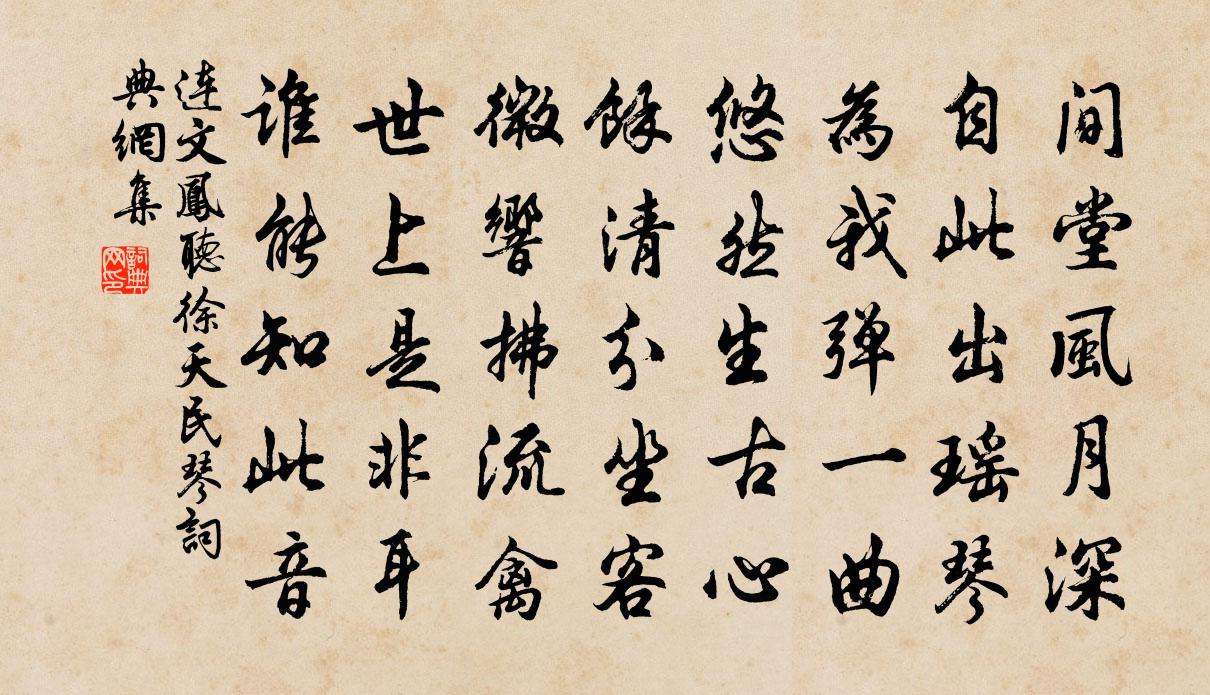 間堂風月深
自此出瑶琴
為我弹一曲
悠然生古心
餘清分坐客
微響拂流禽
世上是非耳
誰能知此音
連文鳳聽徐天民琴詞
典網集
詞典
网印